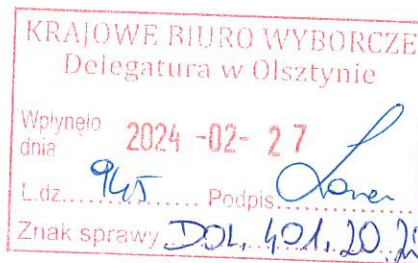 KRAJOWE BIURO WYBORCZE
Delegatura w Olsztynie
Wpłynęło
dnia 2024 -02- 27
L.dz. 945 Podpis
Znak sprawy DOL. 401.20.